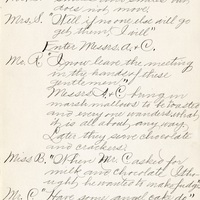 does not move.
Mrs. S. "Well if no one else will go
get them, I will"
Enter Messrs. A. + C.
Mr. R. "I now leave the meeting
in the hands of these
gentlemen."
Messrs. A + C bring in
marshmallows to be toasted
and every one wonders what
it is all about, any way.
Later they serve chocolate
and crackers.
Miss B. "When Mr. C asked for
milk and chocolate I tho
he wanted to make fudge"
Mr. C. "Have some angel cake do"